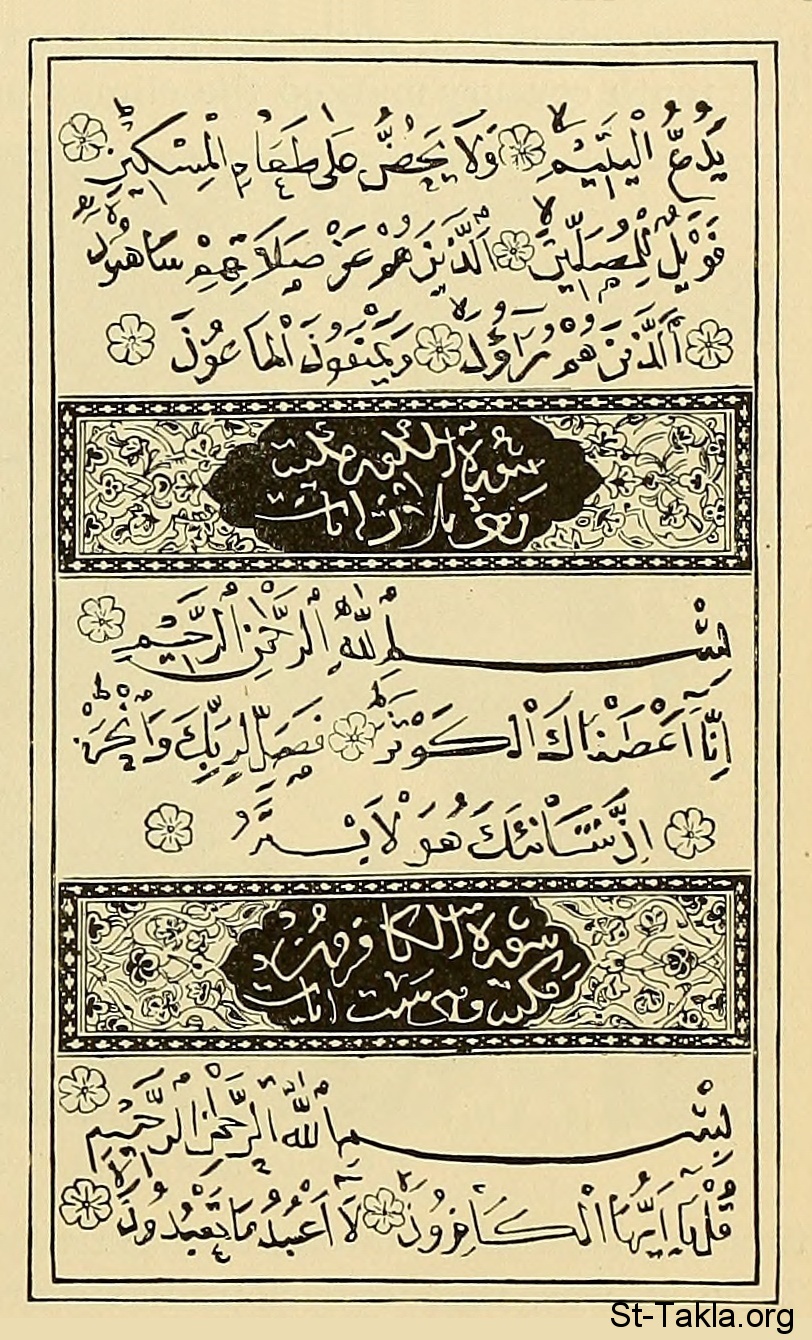 يَدُعُّ الْيَتِيمَ وَلَا يَحُضُّ عَلَى طَعَامِ الْمِسْكِينِ
فَوَيْلٌ لِلْمُصَلِّينَ الَّذِينَ هُمْ عَنْ صَلَاتِهِمْ سَاهُونَ
الَّذِينَ هُمْ يُرَاؤُنَ وَيَمْنَعُونَ الْمَاعُونَ
سورة الكوثر مكية
وهى ثلاث ايات
بِسْمِ اللَّهِ الرَّحْمَنِ الرَّحِيمِ
اِنَّا اَعْطَيْنَاكَ الْكَوْثَرَ فَصَلِّ لِرَبِّكَ وَانْحَرْ
اِنَّ شَانِئَكَ هُوَ الْاَبْتَرُ
سورة الكافرون
مكية وهى ست ايات
بِسْمِ اللَّهِ الرَّحْمَنِ الرَّحِيمِ
قُلْ يَا اَيُّهَا الْكَافِرُونَ لَا اَعْبُدُ مَا تَعْبُدُونَ
St-Takla.org